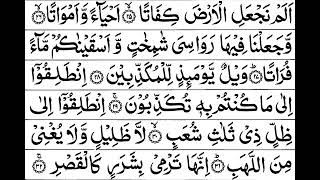 اَلَمۡ نَجۡعَلِ الۡاَرۡضَ كِفَاتًا ﴿۲۵﴾ اَحۡيَآءً وَّاَمۡوَاتًا ﴿۲۶﴾
وَّجَعَلۡنَا فِيۡهَا رَوَاسِىَ شٰمِخٰتٍ وَّاَسۡقَيۡنٰكُمۡ مَّآءً
فُرَاتًا ﴿۲۷﴾ وَيۡلٌ يَّوۡمَئِذٍ لِّلۡمُكَذِّبِيۡنَ ﴿۲۸﴾ اِنۡطَلِقُوۡۤا
اِلٰى مَا كُنۡتُمۡ بِهٖ تُكَذِّبُوۡنَ ﴿۲۹﴾ اِنۡطَلِقُوۡۤا اِلٰى
ظِلٍّ ذِىۡ ثَلٰثِ شُعَبٍ ﴿۳۰﴾ لَّا ظَلِيۡلٍ وَّلَا يُغۡنِىۡ
مِنَ اللَّهَبِ ﴿۳۱﴾ اِنَّهَا تَرۡمِىۡ بِشَرَرٍ كَالۡقَصۡرِ ﴿۳۲﴾